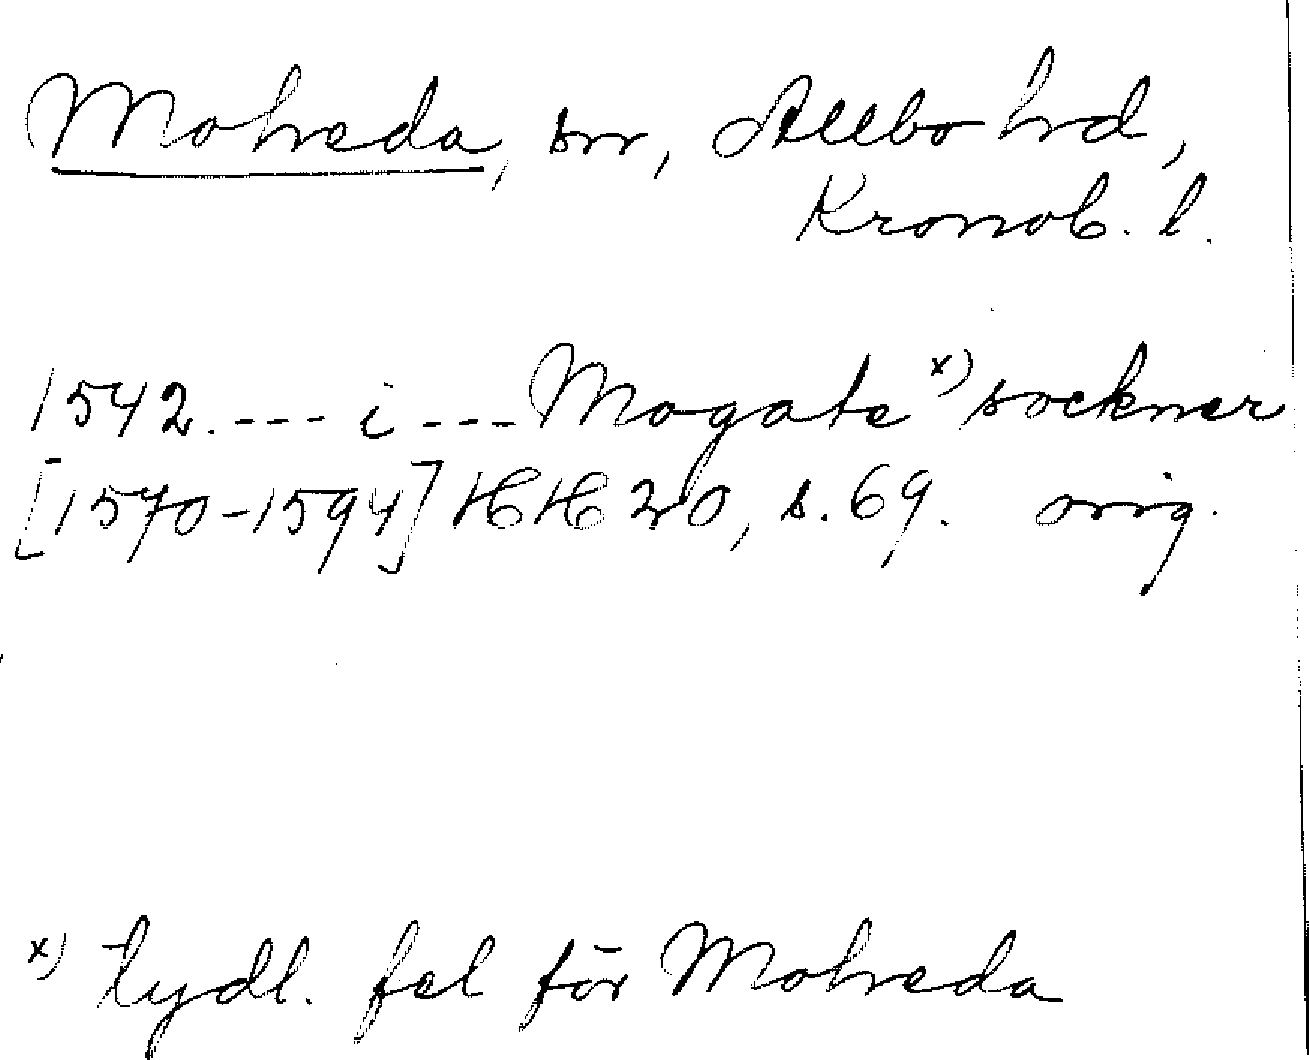 Moheda, sn, Allbo hd,
Kronob. l.
1542. --- i --- Mogate x) sockner
[1570-1594] HH 20, s. 69. orig.
x) tydl. fel för Moheda